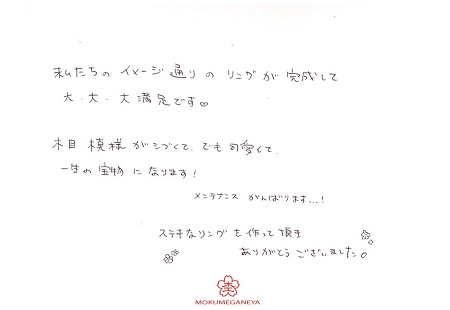 私たちの イメージ通り の リングが 完成して
大、大、大満足です♡
木目 模様がシブくて、でも 可愛くて、
一生の宝物 に なります!
メンテナンス がんばります...!
ステキなリング を 作って 頂き
ありがとう ございました。
杢
MOKUMEGANEYA